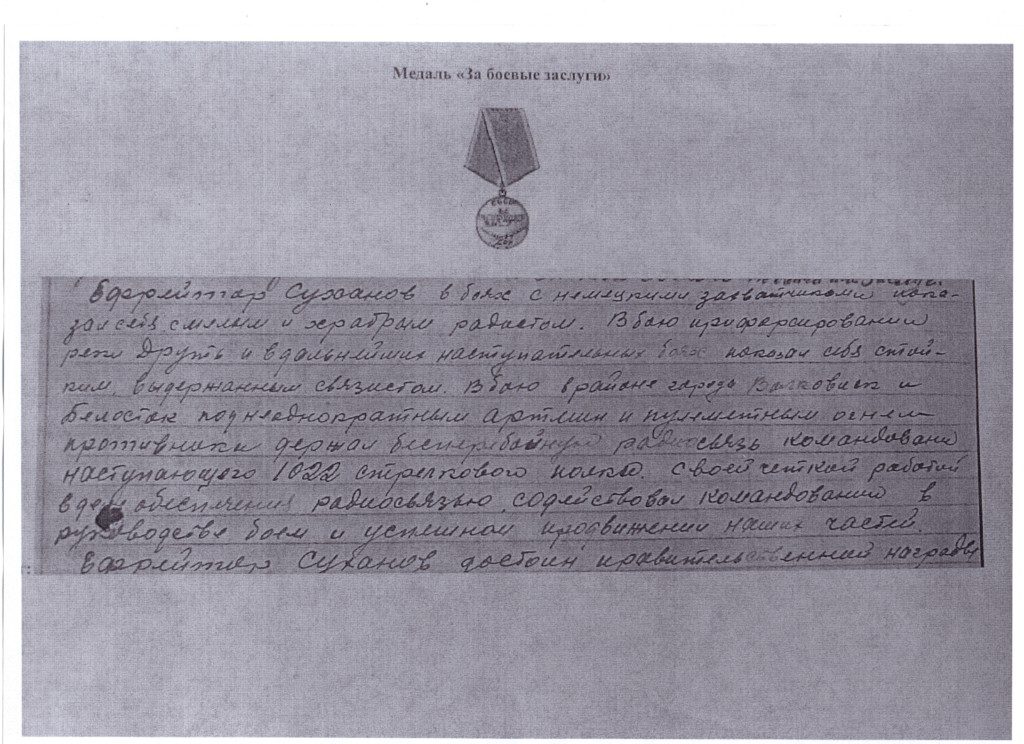 Медаль «За боевые заслуги»
Ефрейтор Суханов в боях с немецкими захватчиками пока-
зал себя смелым и храбрым радистом. В бою при форсировании
реки Друть и в дальнейших наступательных боях показал себя стой-
ким, выдержанным связистом. В бою в районе города Волковыск и
Белосток под неоднократным артмин и пулеметным огнем
противника держал бесперебойную радиосвязь командования
наступающего 1022 стрелкового полка. Своей четкой работой
в деле обеспечения радиосвязью содействовал командованию в
руководстве боем и успешном продвижении наших частей.
Ефрейтор Суханов достоин правительственной награды